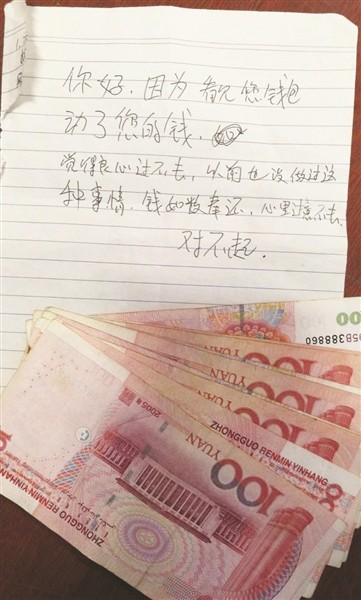 你好，因为看见您钱包
动了您的钱，
觉得良心过不去，以前也没做过这
种事情，钱如数奉还，心里过意不去，
对不起．
100
5B388860
100
100
100
100
YUAN
2005年
ZHONGGUO RENMIN YINHANG
100
YUAN
ZHONGGUO RENMIN YINHAN